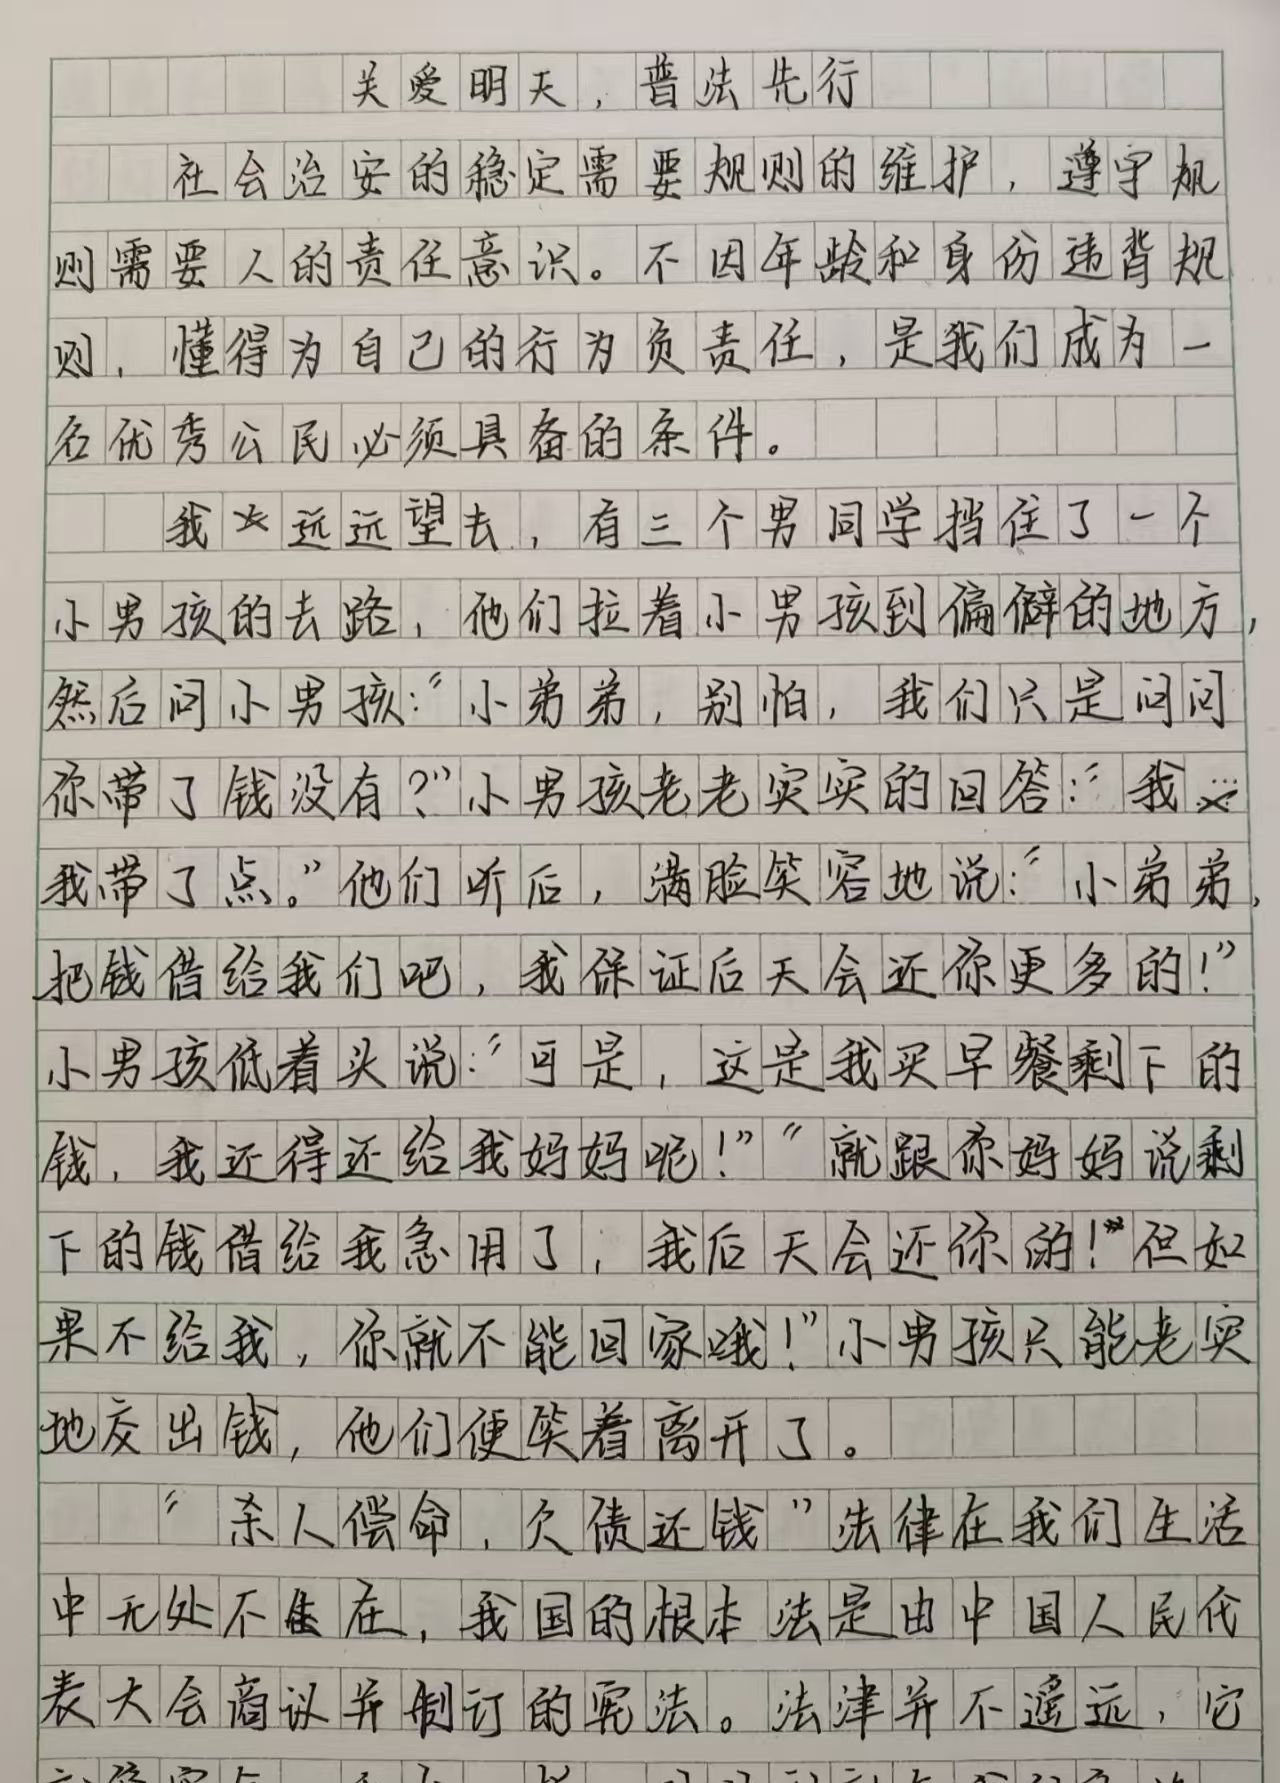 关爱明天，普法先行
社会治安的稳定需要规则的维护，遵守规
则需要人的责任意识。不因年龄和身份违背规
则，懂得为自己的行为负责任，是我们成为一
名优秀公民必须具备的条件。
我远远望去，有三个男同学挡住了一个
小男孩的去路，他们拉着小男孩到偏僻的地方，
然后问小男孩：“小弟弟，别怕，我们只是问问
你带了钱没有？”小男孩老老实实的回答：“我…
我带了点。”他们听后，满脸笑容地说：“小弟弟，
把钱借给我们吧，我保证后天会还你更多的！”
小男孩低着头说：“可是，这是我买早餐剩下的
钱，我还得还给我妈妈呢！”“就跟你妈妈说剩
下的钱借给我急用了，我后天会还你的！但如
果不给我，你就不能回家哦！”小男孩只能老实
地交出钱，他们便笑着离开了。
“杀人偿命，欠债还钱”法律在我们生活
中无处不在，我国的根本法是由中国人民代
表大会商议并制订的宪法。法津并不遥远，它